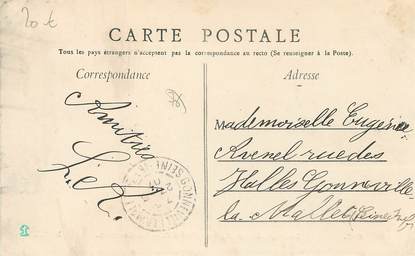 20 €
CARTE POSTALE
Tous les pays étrangers n'acceptent pas la correspondance au recto (Se renseigner à la Poste).
Correspondance
Adresse
Amitiés
Mademoiselle Eugénie
Avenel rue des
Halles Gonneville
la Mallet (Seine Inf